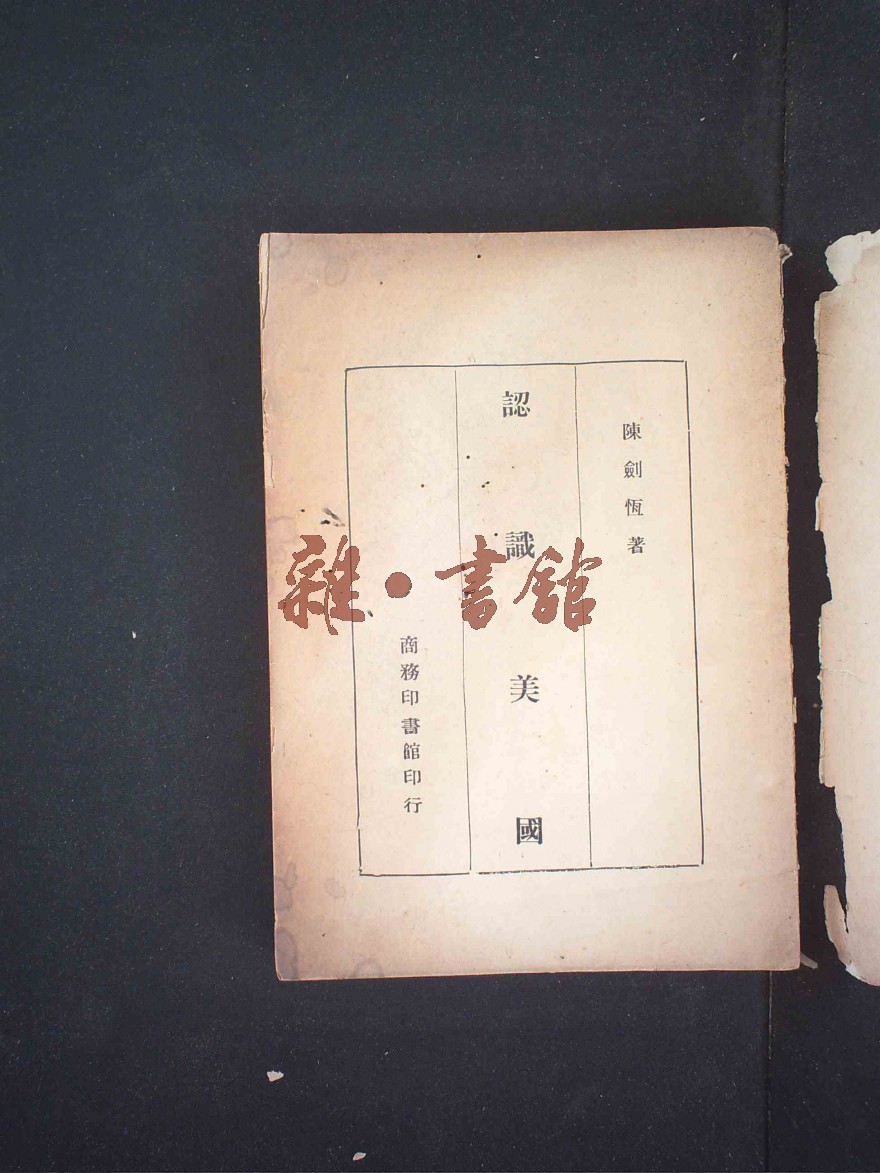 陳劍恆著
認識美國
商務印書館印行
雜·書館